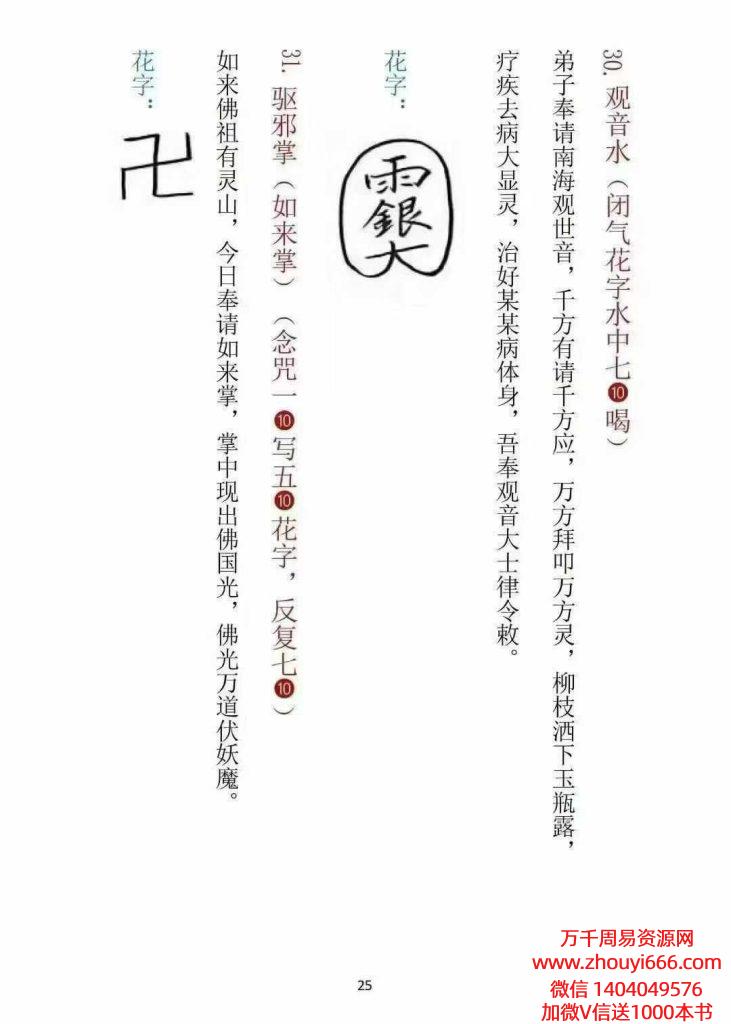 30. 观音水（闭气花字水中七❿喝）
弟子奉请南海观世音，千方有请千方应，万方拜叩万方灵，柳枝洒下玉瓶露，
疗疾去病大显灵，治好某某病体身，吾奉观音大士律令敕。
花字：
雨
銀
大
31. 驱邪掌（如来掌）（念咒一❿写五❿花字，反复七❿）
如来佛祖有灵山，今日奉请如来掌，掌中现出佛国光，佛光万道伏妖魔。
花字：
卍
25
万千周易资源网
www.zhouyi666.com
微信 1404049576
加微V信送1000本书